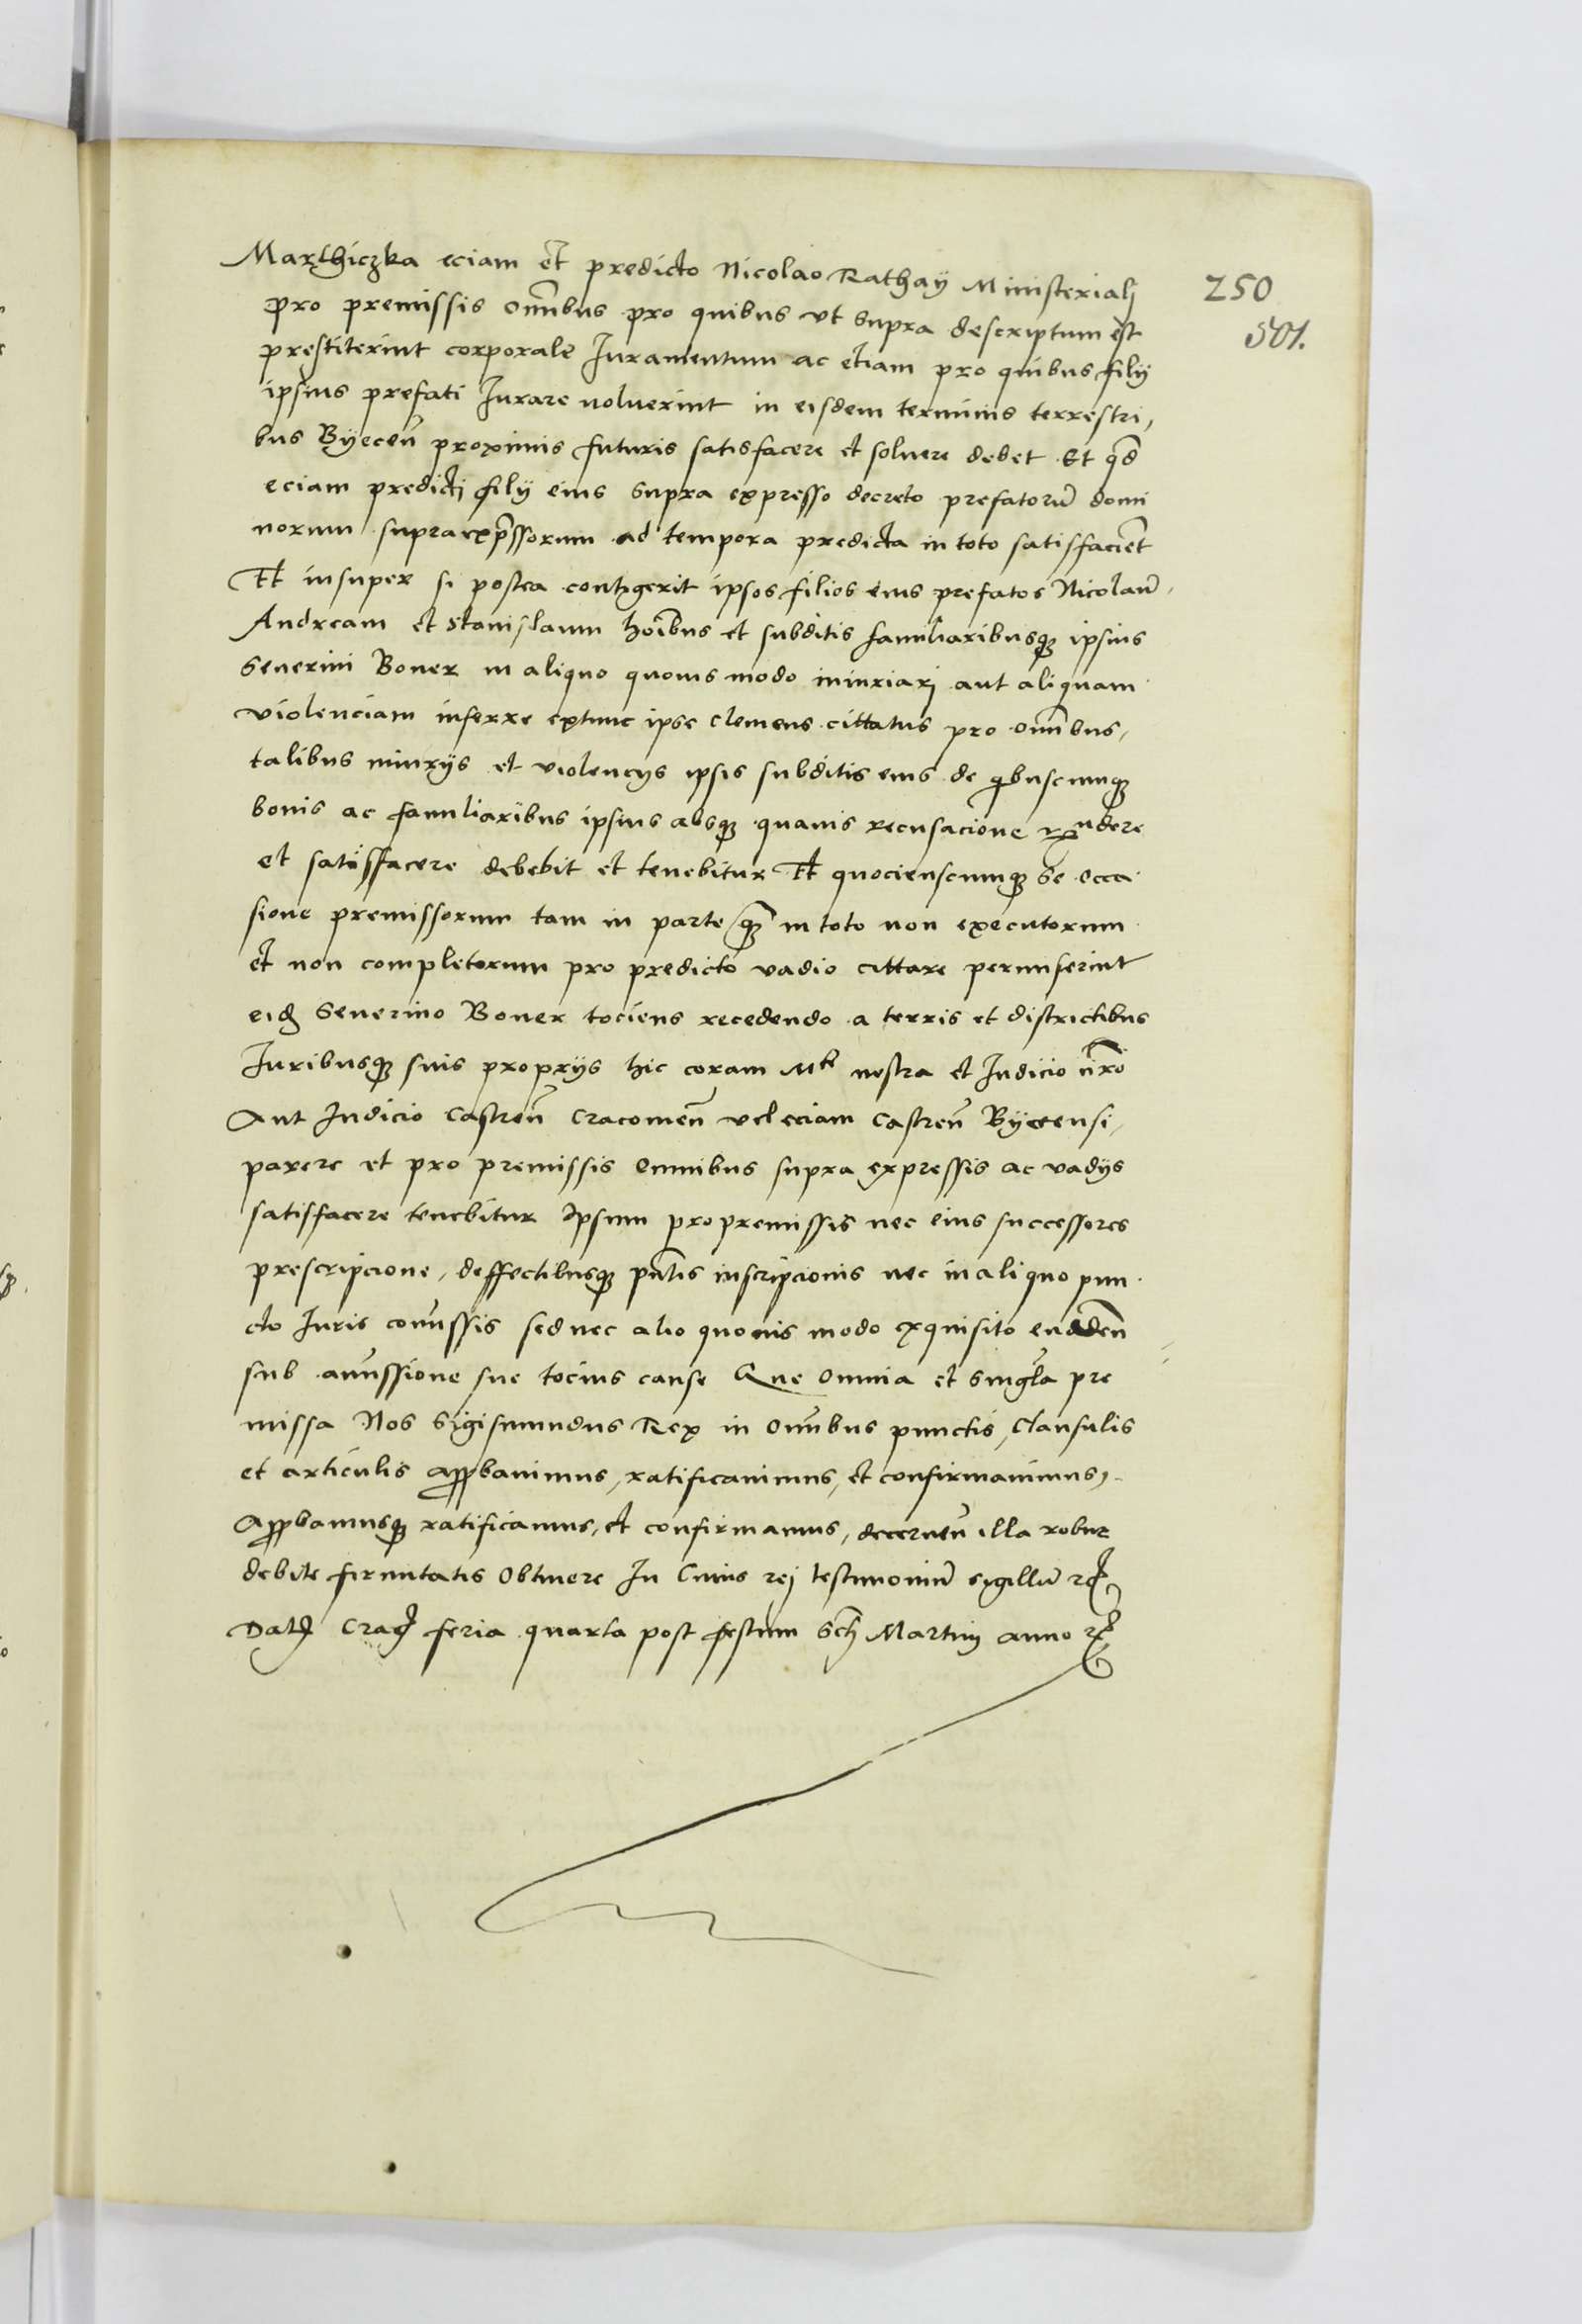 Marthiczka eciam et predicto Nicolao Rathaÿ Ministerialj
pro premissis om̃ibus pro quibus vt supra descriptum est
prestiterint corporale Iuramentum ac etiam pro quibus filÿ
ipsius prefati Iurare uoluerint in eisdem terminis terrestri,
bus Byeceñ proximis futuris satisfacere et soluere debet Et qd̃
eciam predictj filÿ eius supra expresso decreto prefatorũ domi
norum supraexp̃ssorum ad tempora predicta in toto satisfacient
Et insuper si postea contigerit ipsos filios eius prefatos Nicolaũ
Andream et Stanislaum hoĩbus et subditis familiaribusqꝫ ipsius
Seuerini Boner in aliquo quouis modo iniuriarj aut aliquam
violenciam inferre extunc ipse Clemens cittatus pro om̃ibus,
talibus iniurÿs et violencÿs ipsis subditis eius de qͥbuscumqꝫ
bonis ac familiaribus ipsius absqꝫ quauis recusacione rñdere
et satisfacere debebit et tenebitur Et quocienscumqꝫ se occa
sione premissorum tam in parte qꝫ in toto non executorum
et non completorum pro predicto vadio cittare permiserint
eidꝫ Seuerino Boner tociens recedendo a terris et districtibus
Iuribusqꝫ suis proprÿs hic coram Mte nostra et Iudicio nr̃o
Aut Iudicio Castreñ Cracouieñ vel eciam Castreñ Byecensi,
parere et pro premissis omnibus supra expressis ac vadÿs
satisfacere tenebitur Ipsum pro premissis nec eius successores
prescripcione, deffectibusqꝫ pñtis inscripcionis nec in aliquo pun
cto Iuris com̃issis sed nec alio quouis modo exquisito euadeñ
sub amissione sue tocius cause Que omnia et singula pre
missa Nos Sigismundus Rex in om̃ibus punctis, clausulis
et articulis app̃bauimus, ratificauimus, et confirmauimus,
App̃bamusqꝫ ratificamus, et confirmamus, decerneñ illa robur
debite firmitatis obtinere In Cuius rej testimoniũ sigillũ rc̃
Datꝫ Cracꝫ feria quarta post festum Scͥ Martinj anno rc̃
250
501.